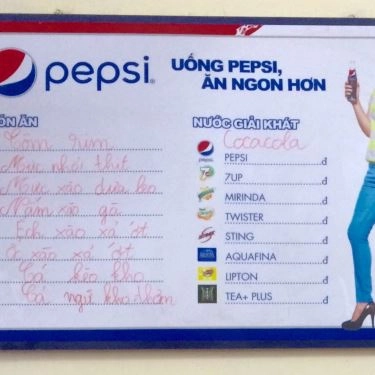 pepsi
UỐNG PEPSI,
ĂN NGON HƠN
ÓN ĂN
Tôm rim
Mực nhồi thịt
Mực xào dưa leo
Nấm xào gà
Ếch xào xả ớt
Ốc xào xả ớt
Cá kèo kho
Cá ngừ kho thơm
NƯỚC GIẢI KHÁT
Cocacola
PEPSI đ
7UP đ
MIRINDA đ
TWISTER đ
STING đ
AQUAFINA đ
LIPTON đ
TEA+ PLUS đ